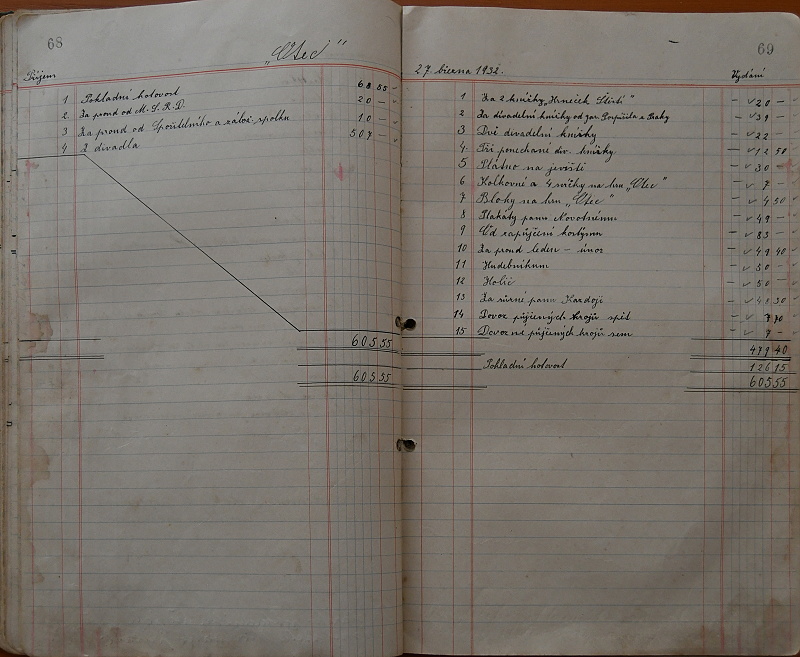 68
„Otec“
Příjem
1 Pokladní hotovost 68 55
2 Za proud od M. S. R. D. 20 —
3 Za proud od Spořitelního a zálož. spolku 10 —
4 Z divadla 507 —
605 55
605 55
69
27. března 1932.
Vydání
1 Za 2 knížky „Hrneček Štěstí“ — 20 —
2 Za divadelní knížky od Jar. Pospíšila z Prahy — 39 —
3 Dvě divadelní knížky — 22 —
4. Tři ponechané div. knížky — 12 50
5 Plátno na jeviště — 30 —
6 Kolkovné a 4 svíčky na hru „Otec“ — 7 —
7 Bloky na hru „Otec“ — 4 50
8 Plakáty panu Novotnému — 49 —
9 Od zapůjčení kostýmů — 83 —
10 Za proud leden – únor — 49 40
11 Hudebníkům — 50 —
12 Holič — 50 —
13 Za různé panu 48 30
14 Dovoz půjčených krojů zpět 7 70
15 Dovoz půjčených krojů sem — 7 —
479 40
Pokladní hotovost 126 15
605 55